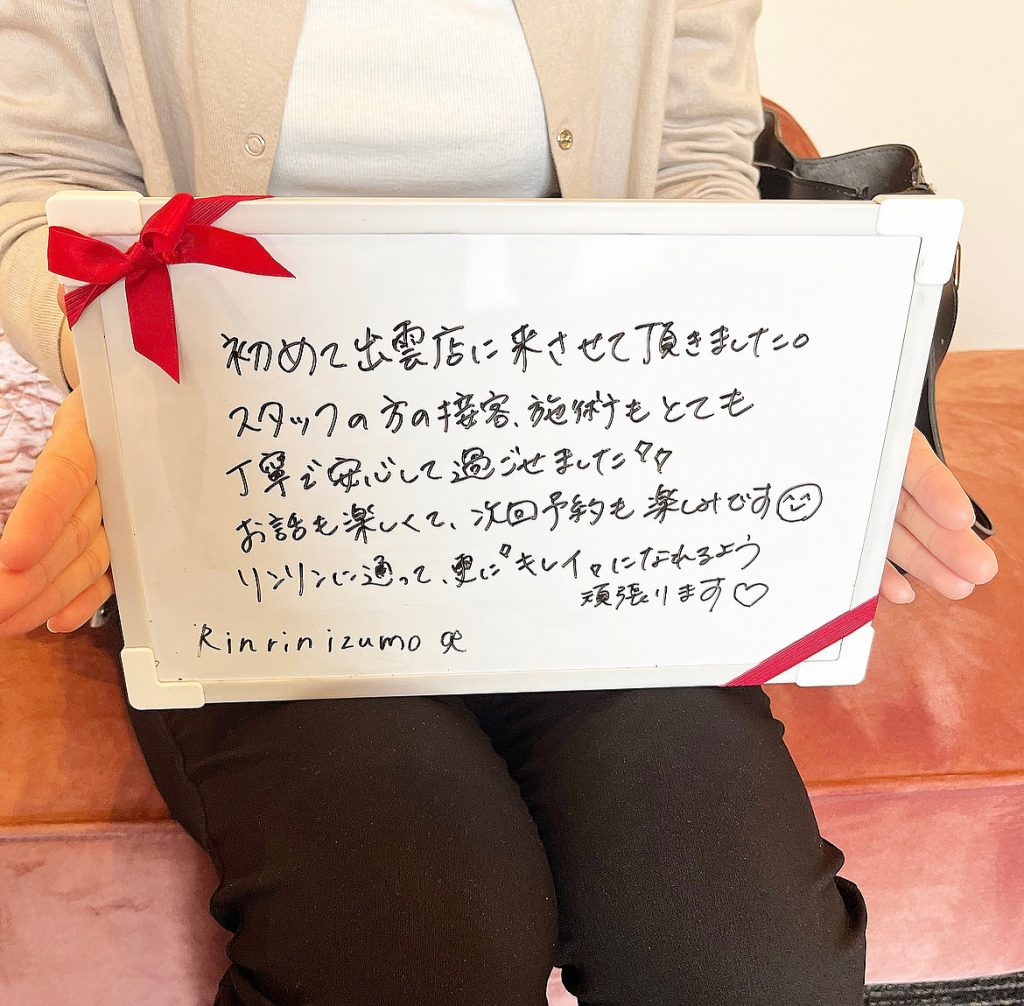 初めて出雲店に来させて頂きました。
スタッフの方の接客、施術もとても
丁寧で安心して過ごせました
お話も楽しくて、次回予約も楽しみです
リンリンに通って、更に"キレイ"になれるよう
頑張ります♡
Rinrinizumo